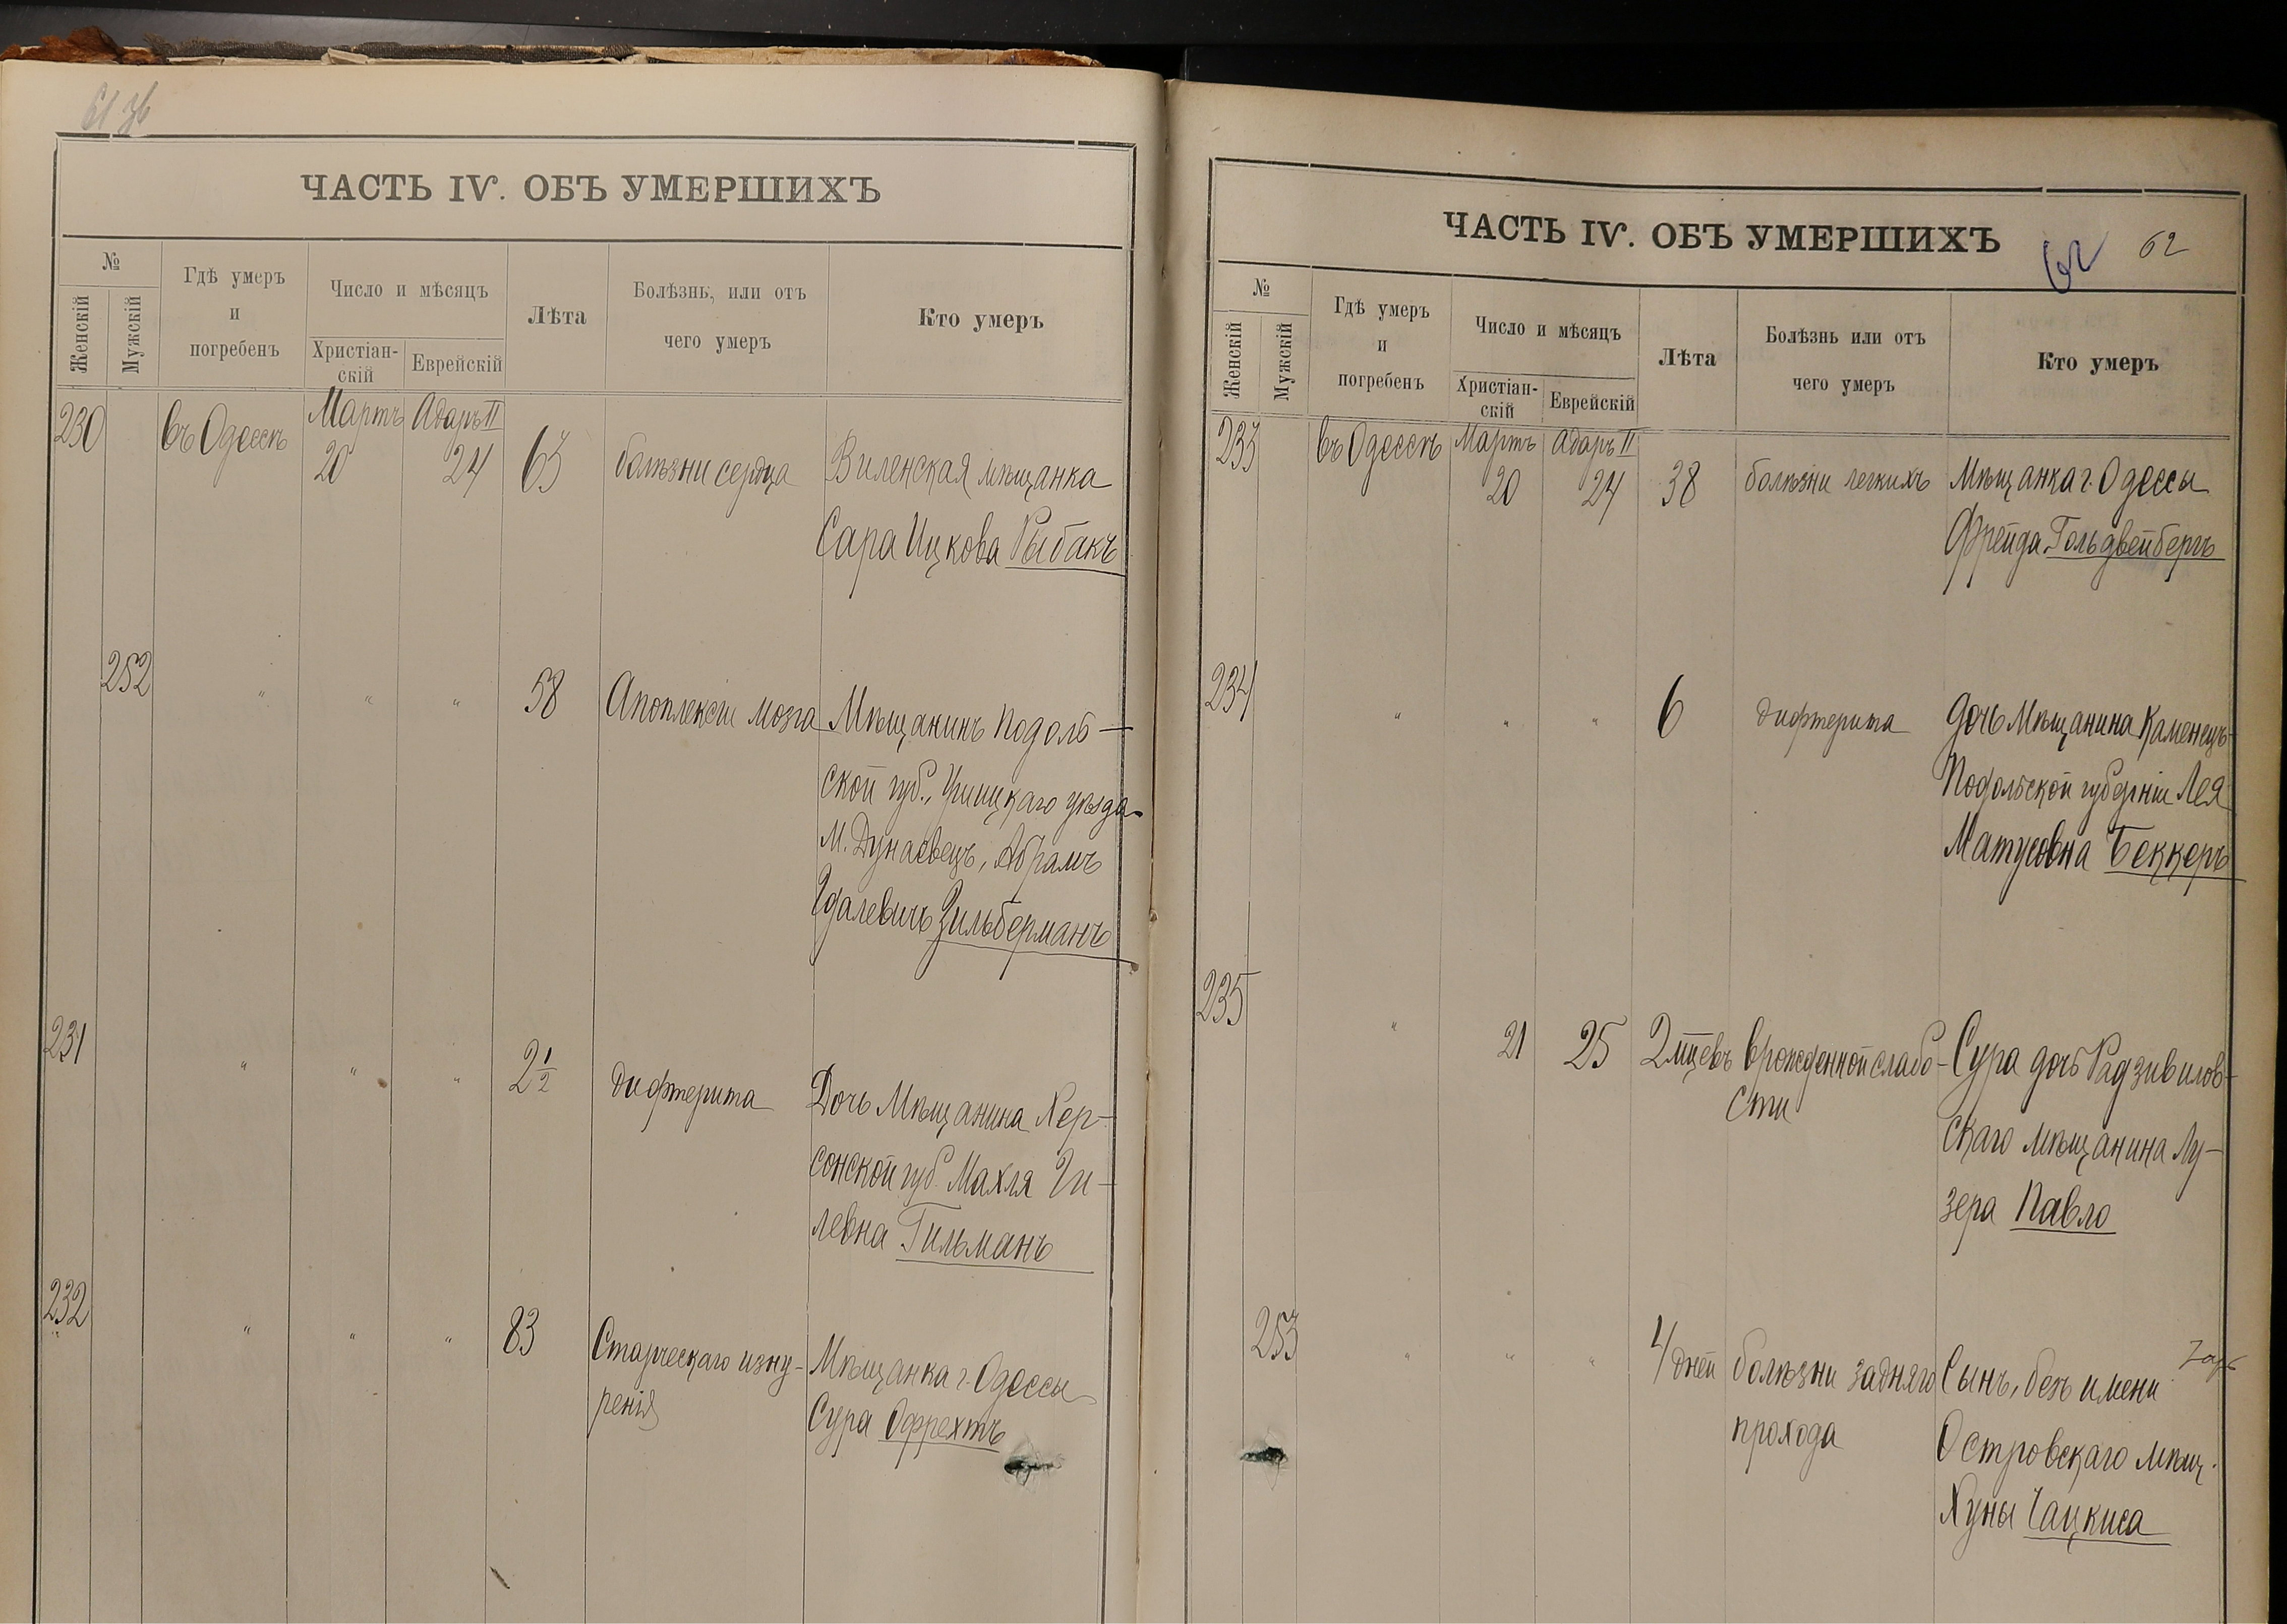 61 об
ЧАСТЬ IV. ОБЪ УМЕРШИХЪ
№
Женскій
Мужскій
Гдѣ умеръ
и
погребенъ
Число и мѣсяцъ
Христіан-
скій
Еврейскій
Лѣта
Болѣзнь, или отъ
чего умеръ
Кто умеръ
230 въ Одессѣ Мартъ 20 Адаръ II 24 65 болѣзни сердца Виленская мѣщанка
Сара Ицкова Рыбакъ
252 " " " 58 Апоплексіи мозга Мѣщанинъ Подоль-
ской губ., Ушицкаго уѣзда
М. Дунаевецъ, Абрамъ
Гдалевичъ Зильберманъ
231 " " " 2 1/2 дифтерита Дочь Мѣщанина Хер-
сонской губ. Махля Ги-
левна Гильманъ
232 " " " 83 Старческаго изну- Мѣщанка г. Одессы
ренія Сура Офрехтъ
ЧАСТЬ IV. ОБЪ УМЕРШИХЪ
62 62
№
Женскій
Мужскій
Гдѣ умеръ
и
погребенъ
Число и мѣсяцъ
Христіан-
скій
Еврейскій
Лѣта
Болѣзнь или отъ
чего умеръ
Кто умеръ
233 въ Одессѣ Мартъ 20 Адаръ II 24 38 болѣзни легкихъ Мѣщанка г. Одессы
Фрейда Гольдвейбергъ
234 " " " 6 дифтерита дочь Мѣщанина Каменецъ-
Подольской губерніи Лея
Матусовна Беккеръ
235 " 21 25 2 мцевъ врожденной слабо- Сура дочь Радзивилов-
сти скаго мѣщанина Лу-
зера Павло
253 " " " 4 дней болѣзни задняго Сынъ, безъ имени
прохода Островскаго мѣщ.
Хуны Чацкиса